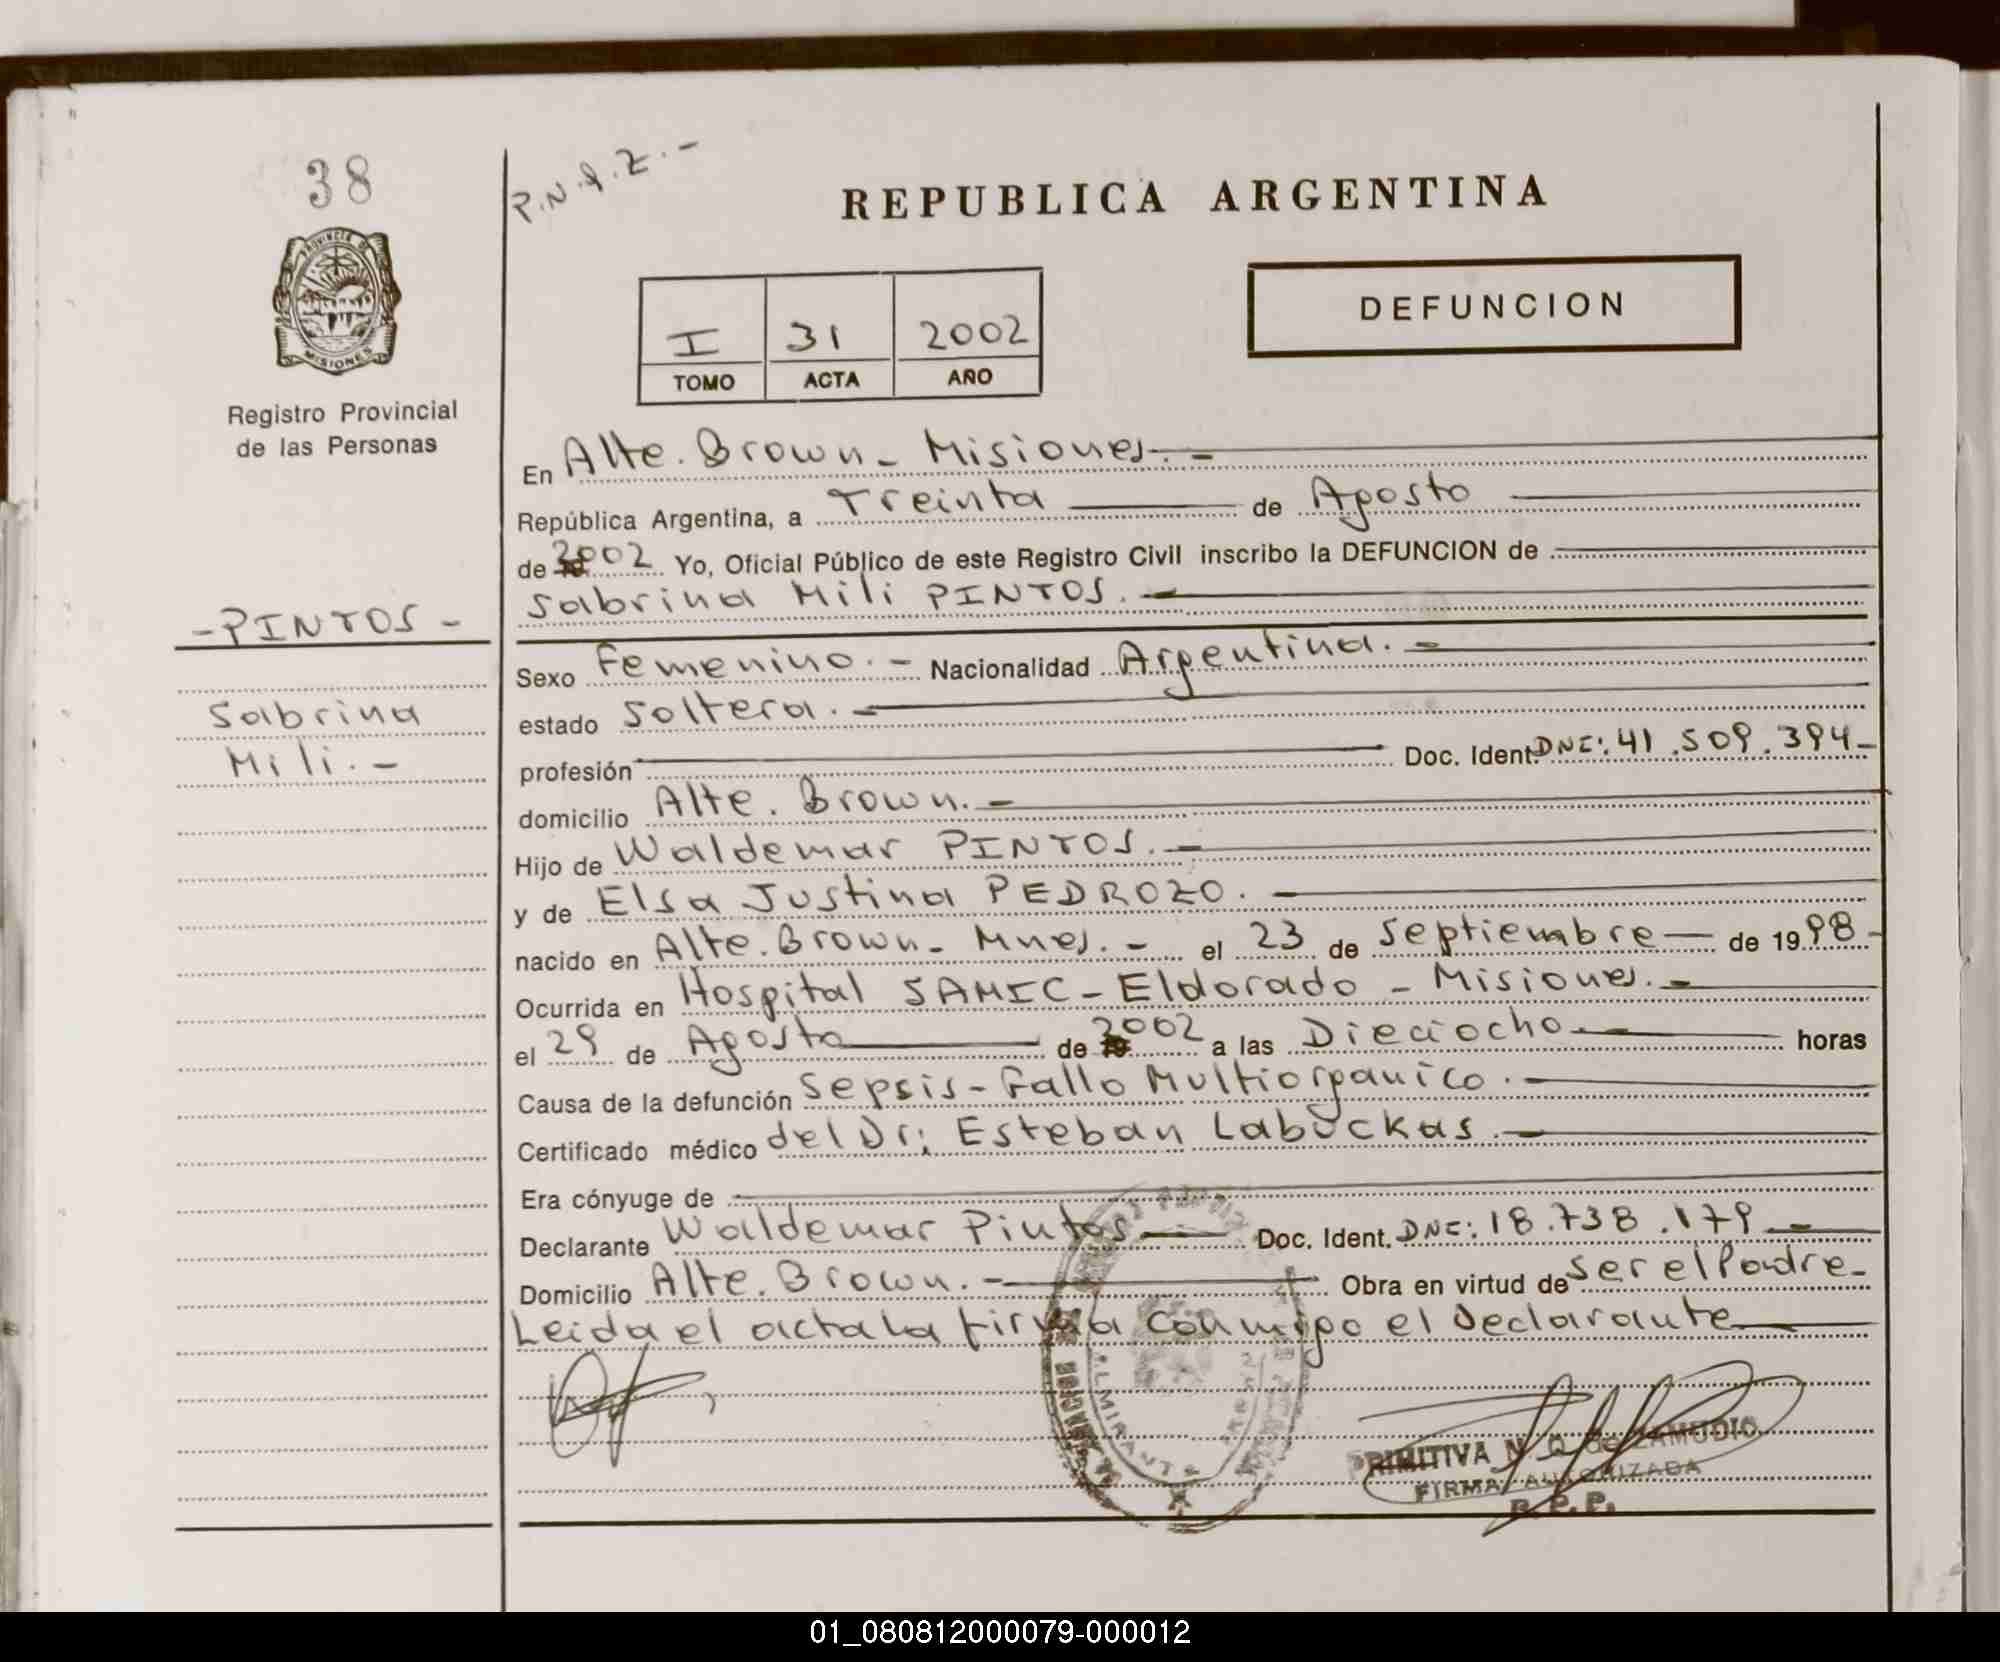 38
P.N.I.Z.-
REPUBLICA ARGENTINA
PROVINCIA DE
MISIONES
Registro Provincial
de las Personas
I 31 2002
TOMO ACTA AÑO
DEFUNCION
En Alte. Brown - Misiones.-
República Argentina, a Treinta de Agosto
de 2002 Yo, Oficial Público de este Registro Civil inscribo la DEFUNCION de
Sabrina Mili PINTOS.-
-PINTOS-
Sabrina
Mili.-
Sexo Femenino.- Nacionalidad Argentina.-
estado Soltera.-
profesión Doc. Ident. DNI: 41.509.394-
domicilio Alte. Brown.-
Hijo de Waldemar PINTOS.-
y de Elsa Justina PEDROZO.-
nacido en Alte. Brown - Mnes.- el 23 de Septiembre de 1998-
Ocurrida en Hospital SAMIC - Eldorado - Misiones.-
el 29 de Agosto de 2002 a las Dieciocho.- horas
Causa de la defunción Sepsis - Fallo Multiorganico.-
Certificado médico del Dr: Esteban Labuckas.-
Era cónyuge de
Declarante Waldemar Pintos.- Doc. Ident. DNI: 18.738.179-
Domicilio Alte. Brown.- Obra en virtud de ser el Padre-
Leida el acta la firma conmigo el Declarante
ALMIRANTE BROWN
PRIMITIVA N. Q. de ZAMUDIO
FIRMA AUTORIZADA
R.P.P.
01_080812000079-000012